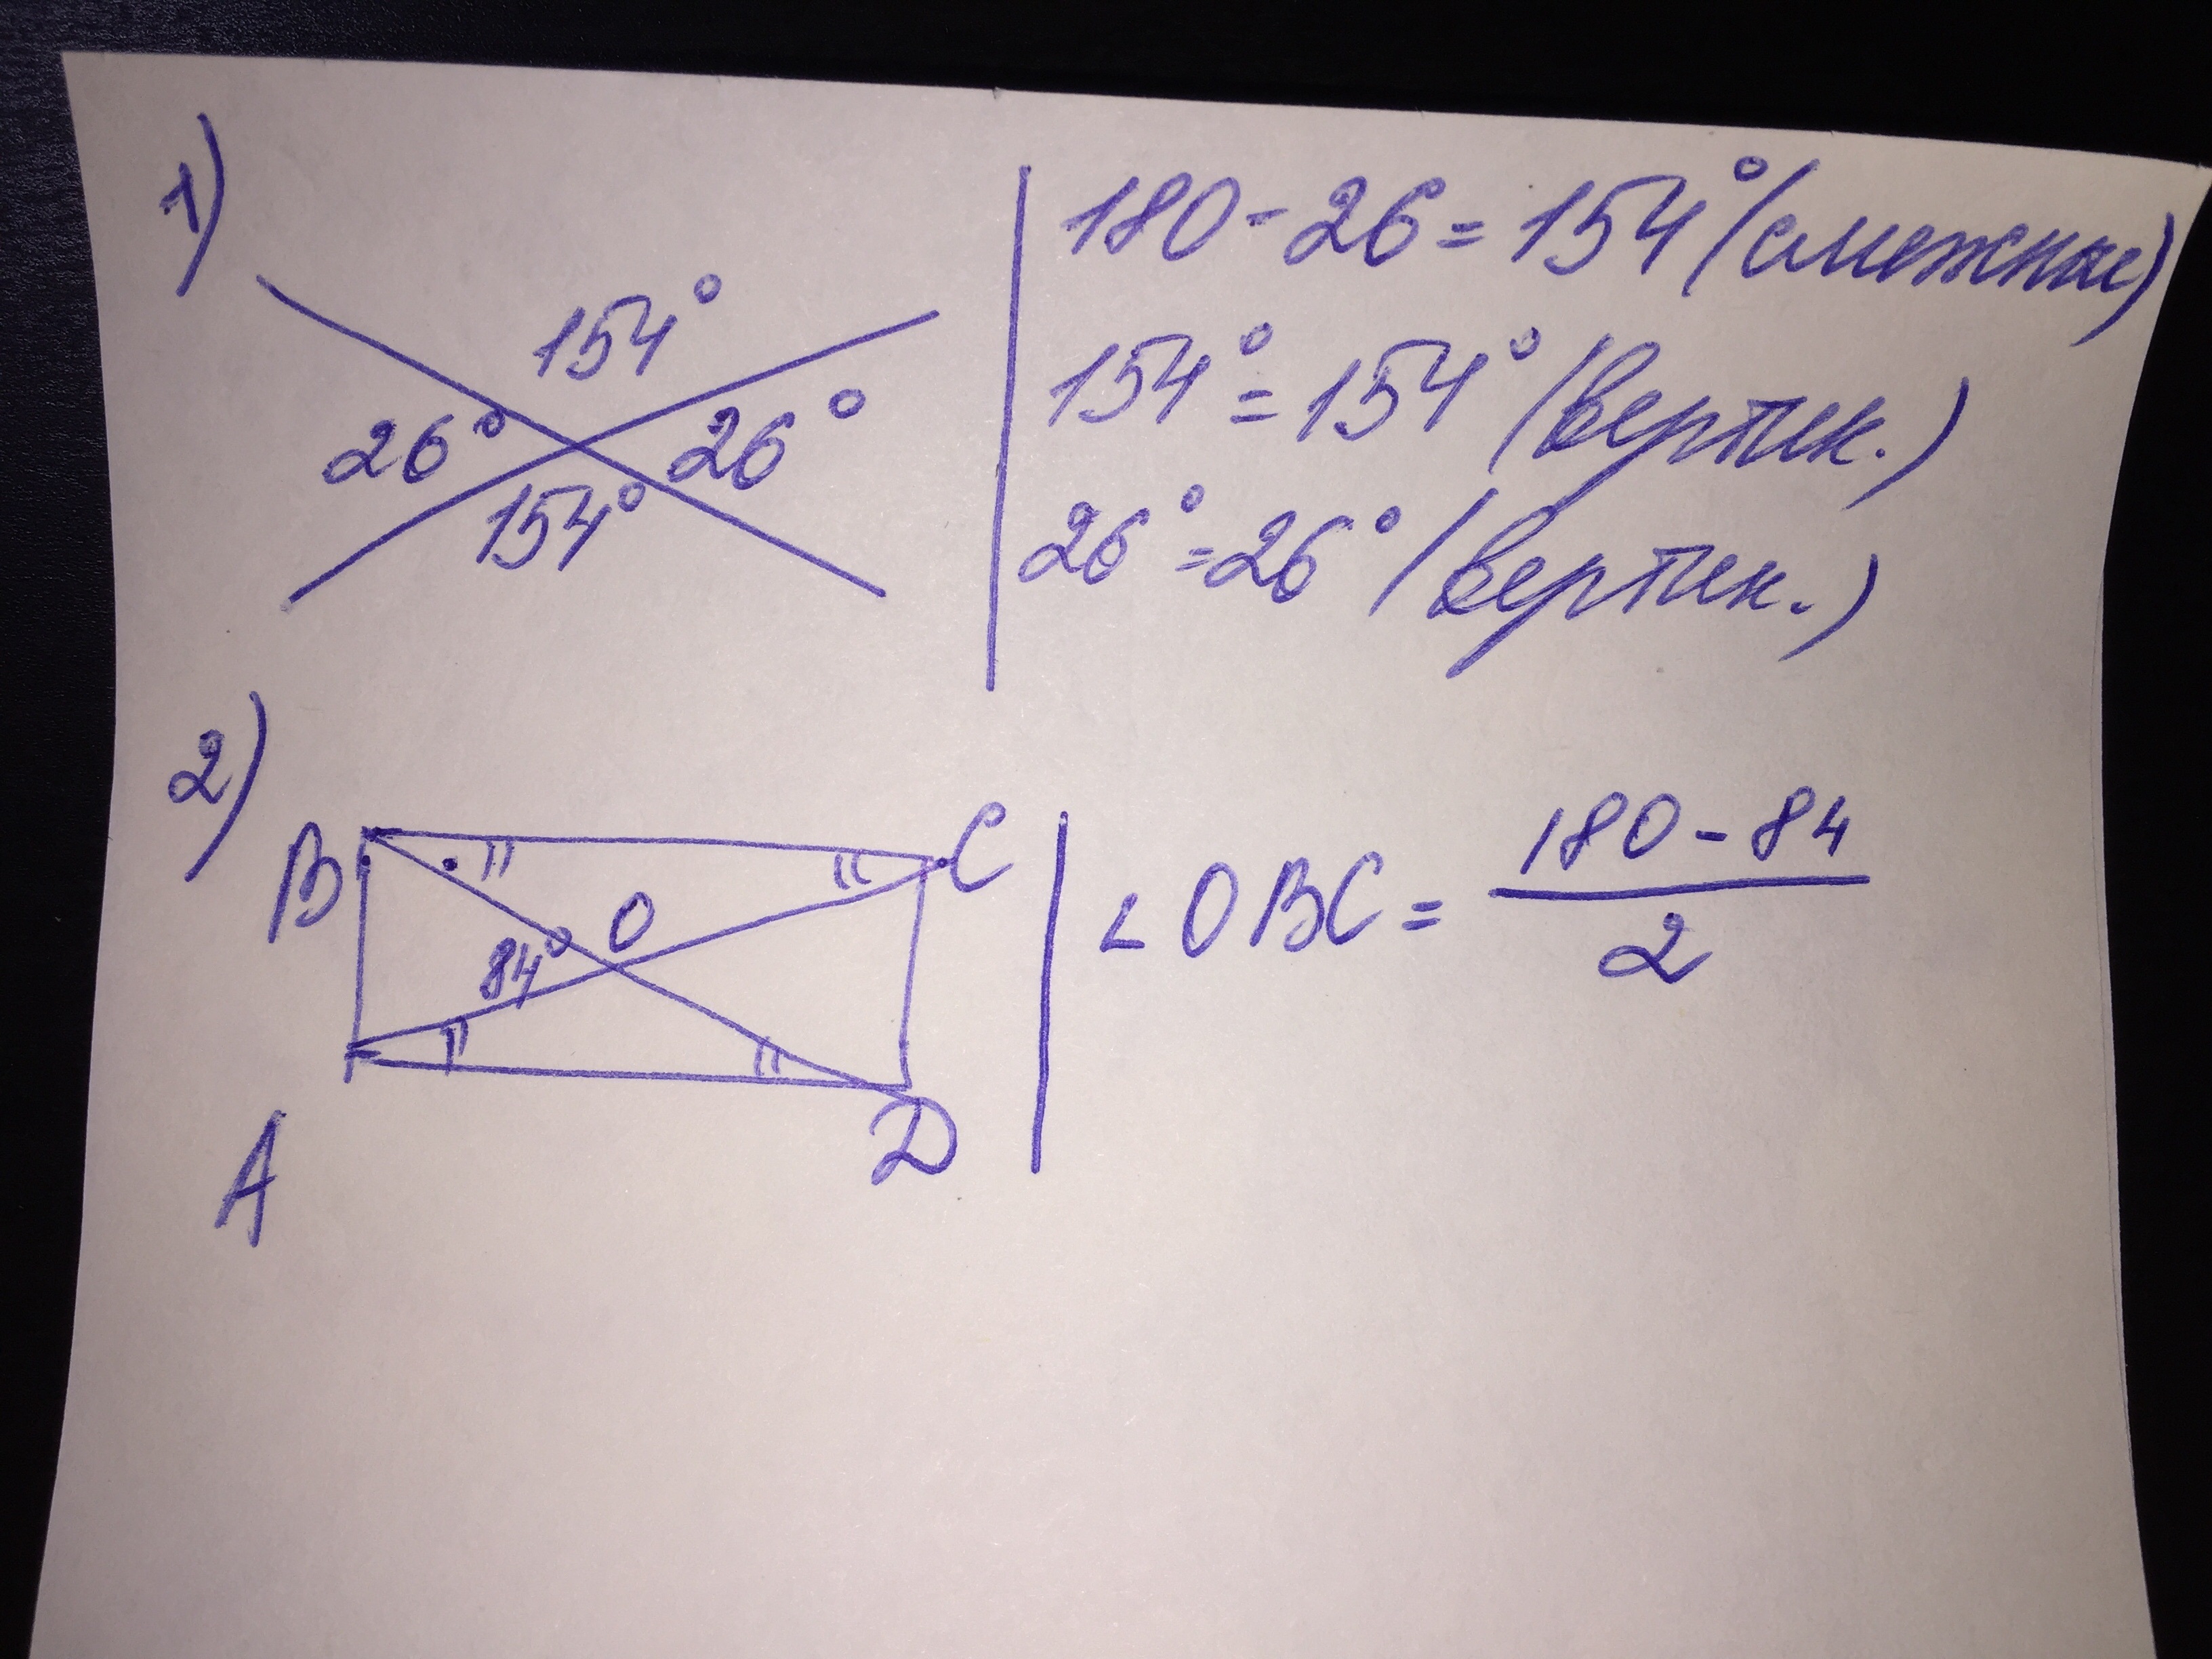 1)
154°
26° 26°
154°
180-26=154° (смежные)
154°=154° (вертик.)
26°=26° (вертик.)
2)
B C
O
84°
A D
∠OBC = (180-84)/2